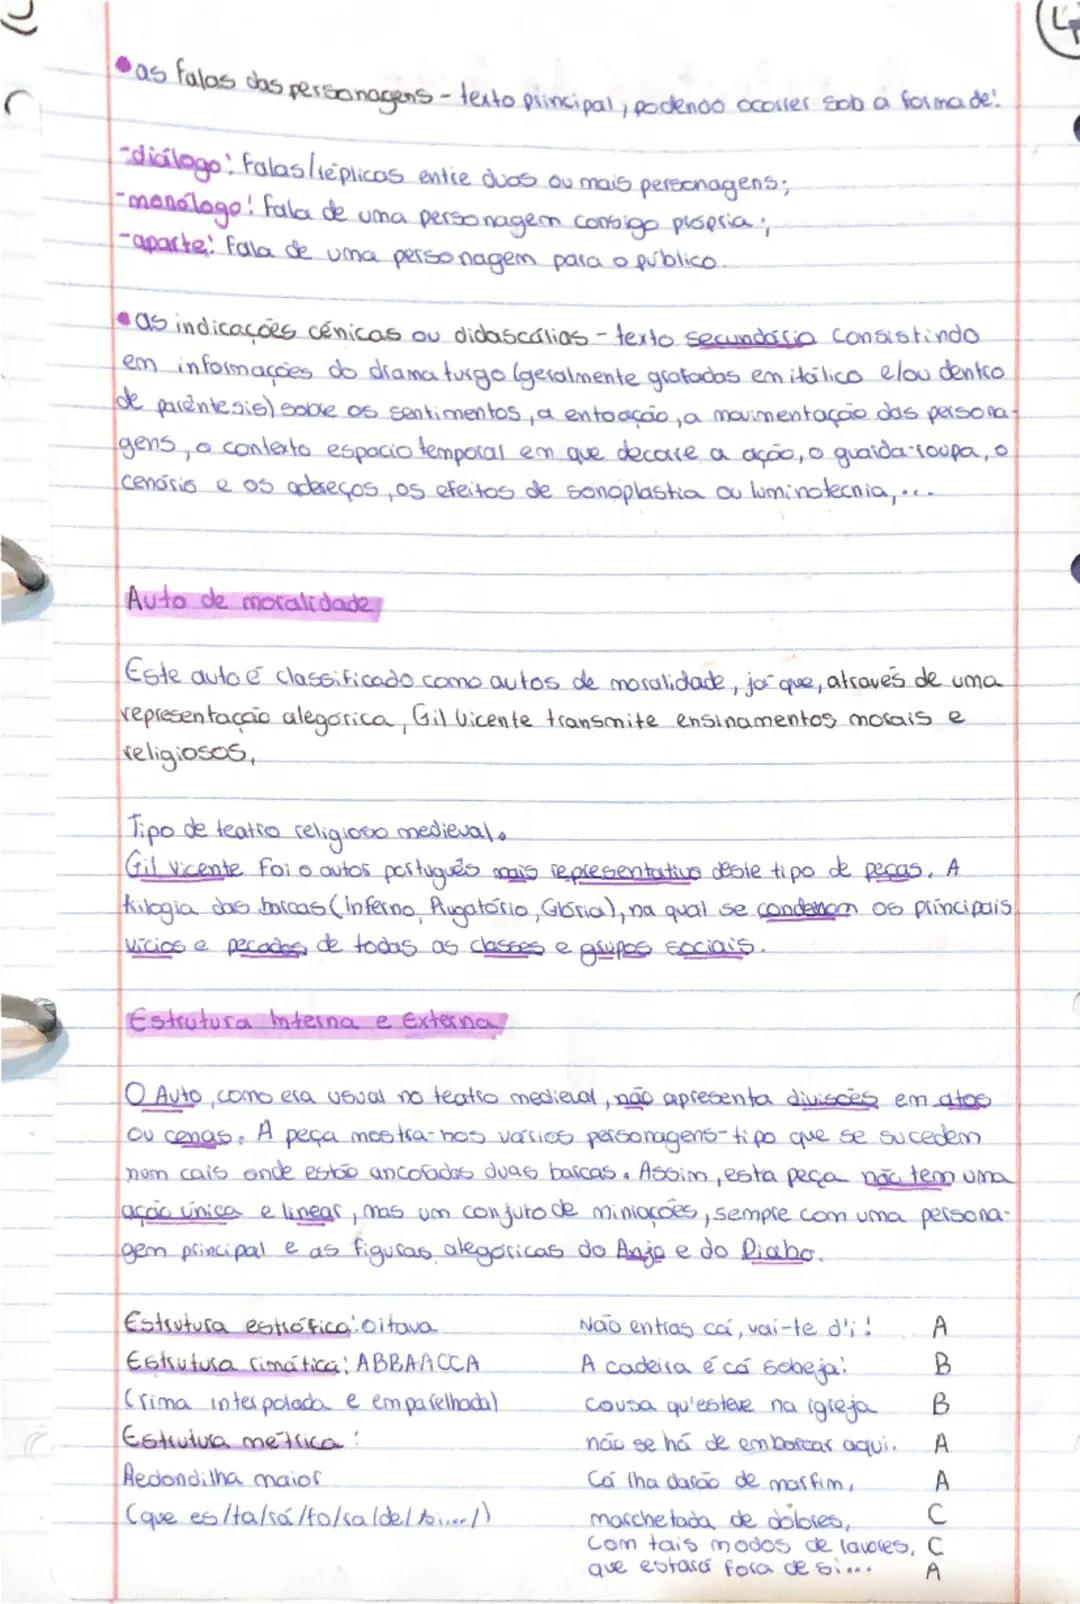 • as falas das personagens - texto principal, podendo ocorrer sob a forma de:
- diálogo: falas/réplicas entre duas ou mais personagens;
- monólogo: fala de uma personagem consigo própria;
- aparte: fala de uma personagem para o público.
• as indicações cénicas ou didascálias - texto secundário consistindo
em informações do dramaturgo (geralmente grafadas em itálico e/ou dentro
de parêntesis) sobre os sentimentos, a entoação, a movimentação das persona-
gens, o contexto espacio temporal em que decorre a ação, o guarda-roupa, o
cenário e os adereços, os efeitos de sonoplastia ou luminotecnia,...
Auto de moralidade
Este auto é classificado como autos de moralidade, já que, através de uma
representação alegórica, Gil Vicente transmite ensinamentos morais e
religiosos,
Tipo de teatro religioso medieval.
Gil Vicente foi o autor português mais representativo deste tipo de peças. A
trilogia das barcas (Inferno, Purgatório, Glória), na qual se condenam os principais
vícios e pecados de todas as classes e grupos sociais.
Estrutura Interna e Externa
O Auto, como era usual no teatro medieval, não apresenta divisões em atos
ou cenas. A peça mostra-nos vários personagens-tipo que se sucedem
num cais onde estão ancoradas duas barcas. Assim, esta peça não tem uma
ação única e linear, mas um conjuto de miniações, sempre com uma persona-
gem principal e as figuras alegóricas do Anjo e do Diabo.
Estrutura estrófica: oitava
Estrutura rimática: ABBAACCA
(rima interpolada e emparelhada)
Estrutura métrica:
Redondilha maior
(que es/ta/rá/fo/ra/de/si.../)
Não entras cá, vai-te d'i! A
A cadeira é cá sobeja: B
cousa qu'esteve na igreja B
não se há de embarcar aqui. A
Cá lha darão de marfim, A
marchetada de dolores, C
Com tais modos de lavores, C
que estará fora de si... A